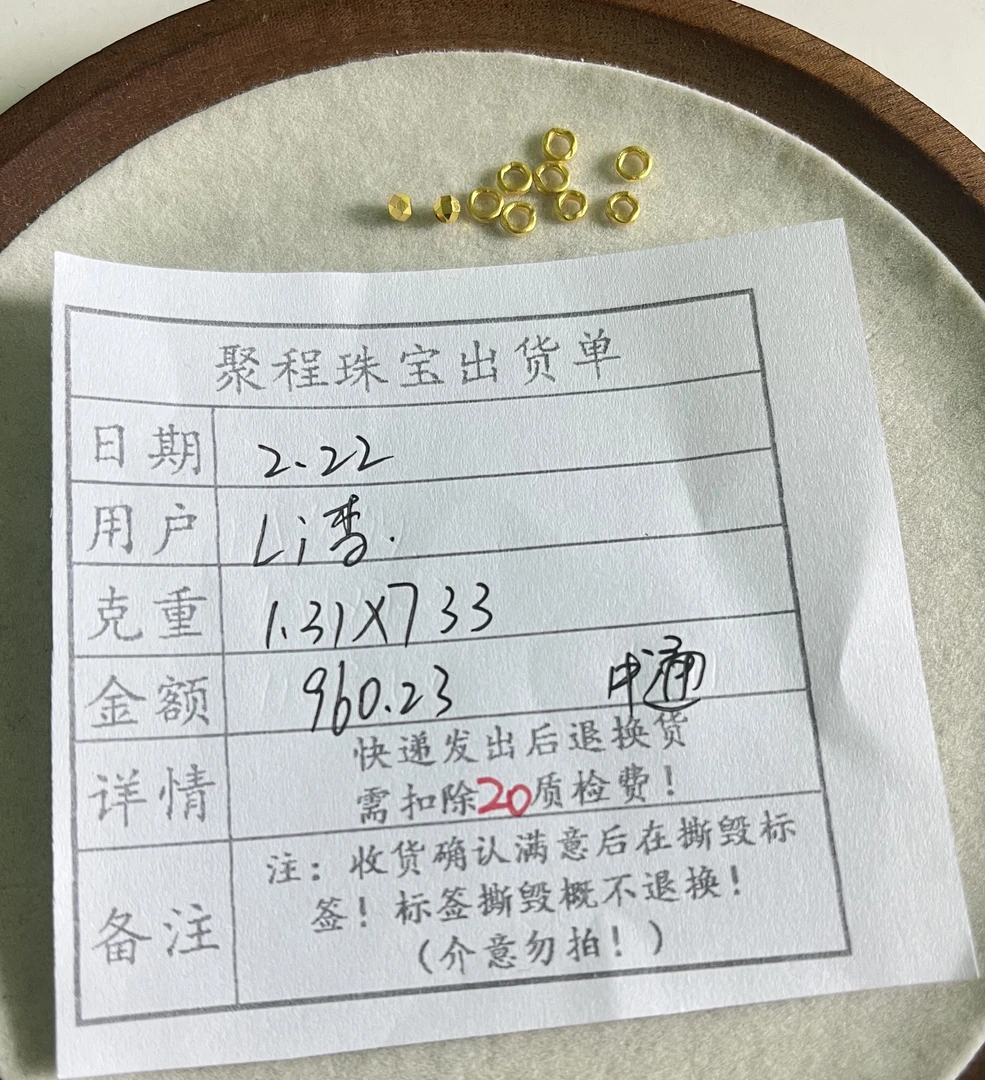 聚程珠宝出货单
日期 2.22
用户 Li李.
克重 1.31X733
金额 960.23 中通
详情 快递发出后退换货
需扣除20质检费！
备注 注：收货确认满意后在撕毁标
签！标签撕毁概不退换！
（介意勿拍！）